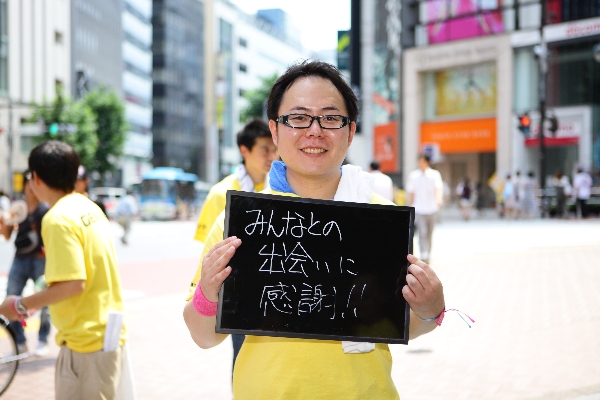 みんなとの
出会いに
感謝!!